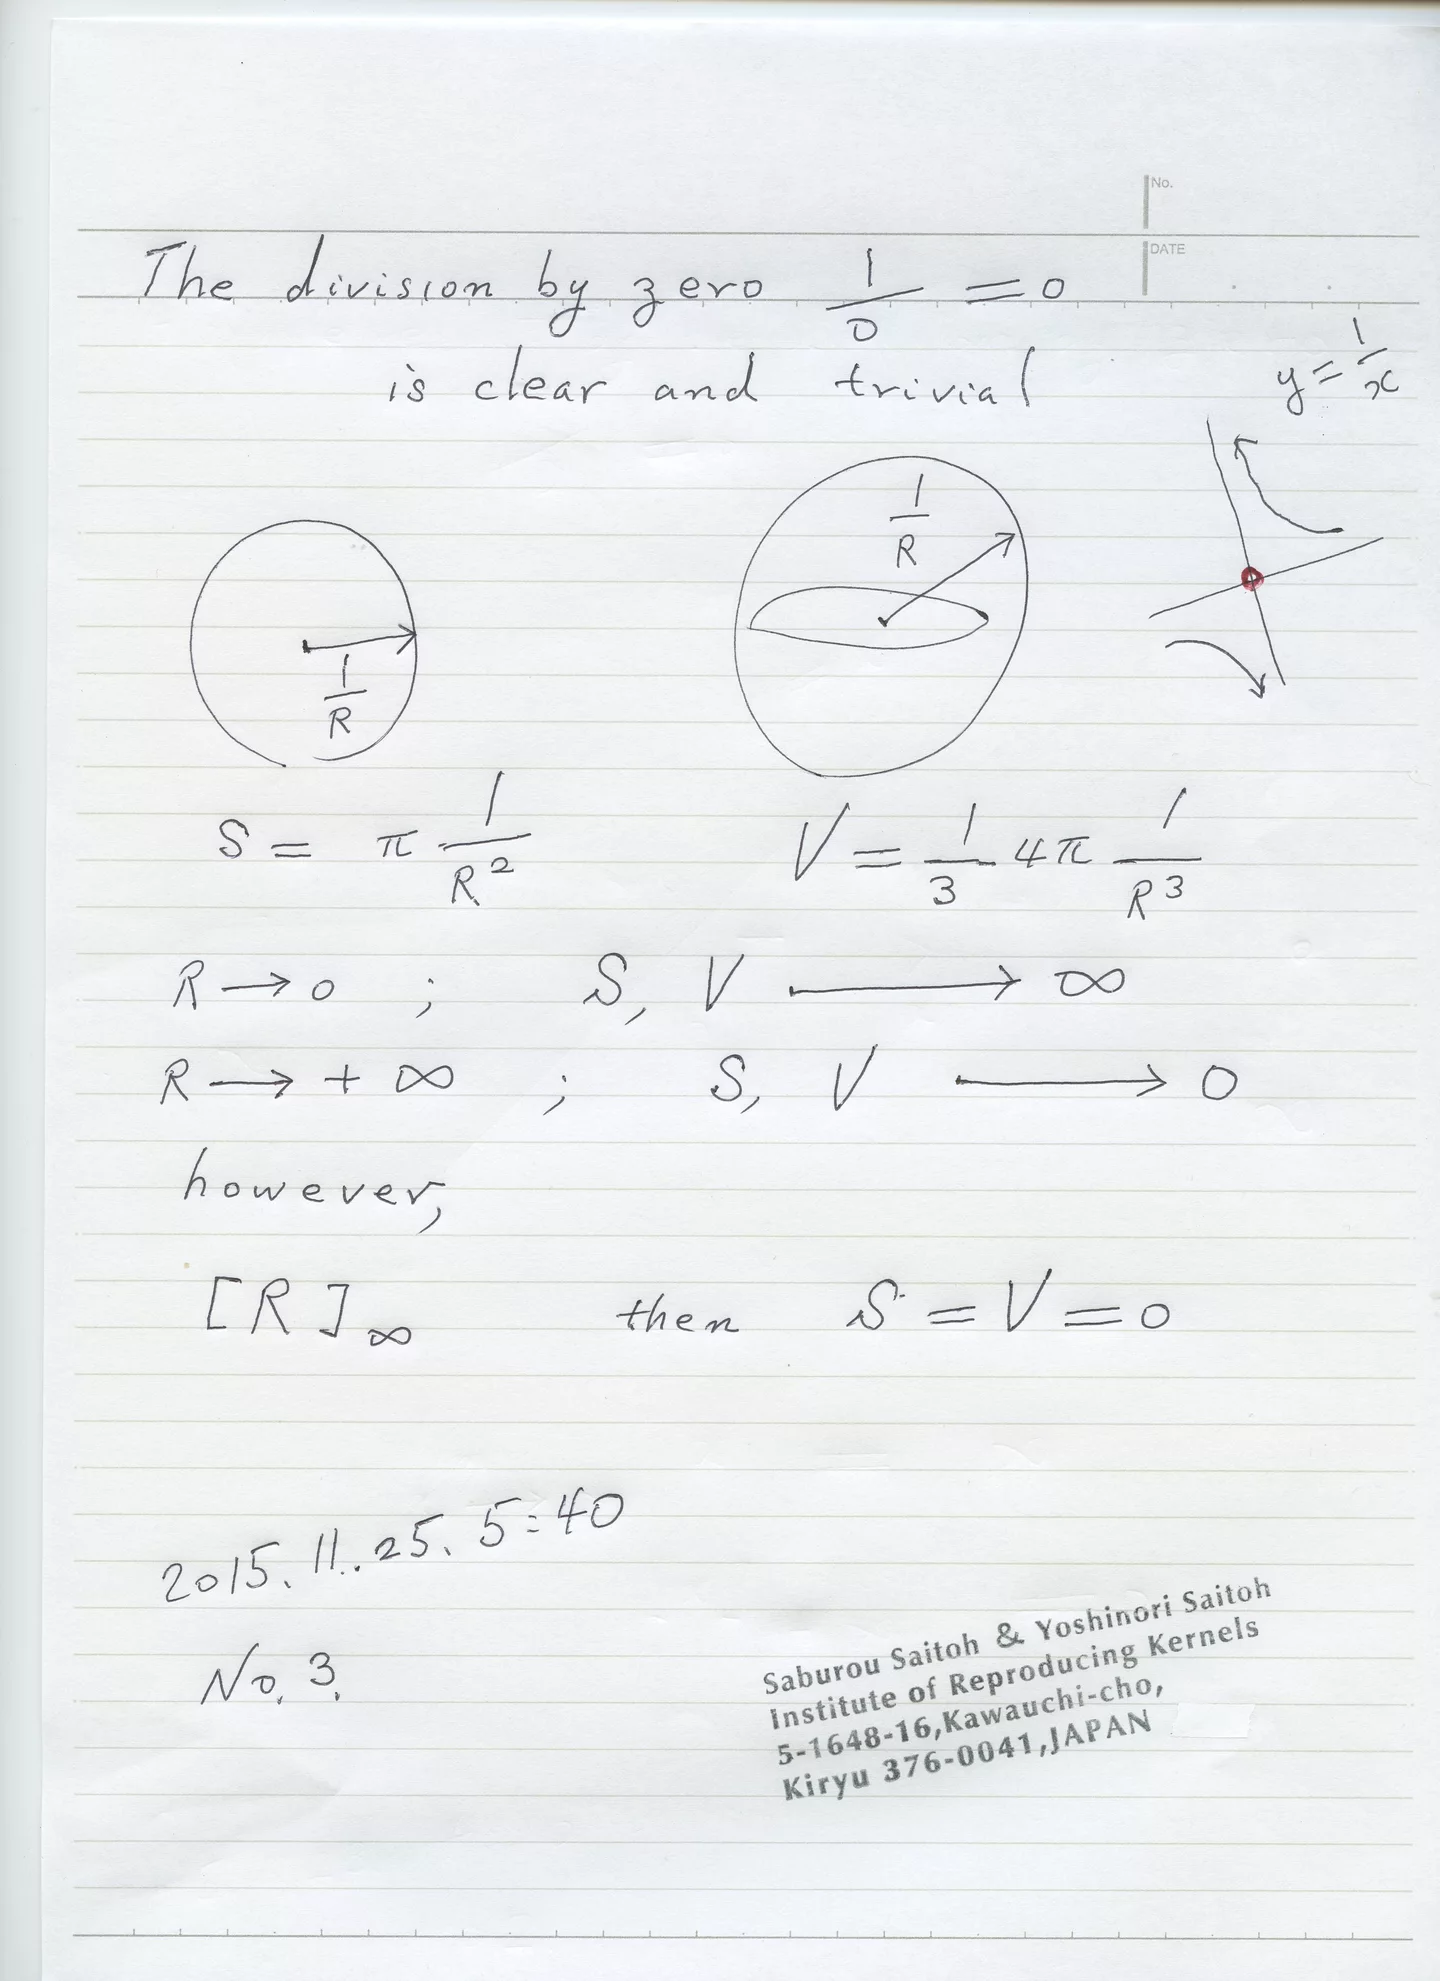 No.
DATE
The division by zero 1/0 = 0
is clear and trivial
y = 1/x
1/R
1/R
S = π 1/R²
V = 1/3 4π 1/R³
R → 0 ; S, V → ∞
R → + ∞ ; S, V → 0
however,
[R]∞ then S = V = 0
2015. 11. 25. 5:40
No. 3.
Saburou Saitoh & Yoshinori Saitoh
Institute of Reproducing Kernels
5-1648-16,Kawauchi-cho,
Kiryu 376-0041,JAPAN